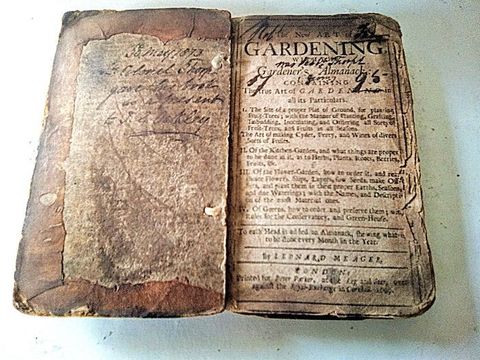 18 May 1873
gave this book
The New ART of
GARDENING
Gardener's Almanack
CONTAINING
The true Art of GARDENING in
all its Particulars.
I. The Site of a proper Plat of Ground, for planting
Fruit-Trees; with the Manner of Planting, Grafting,
Imbudding, Inoculating, and Ordering all Sorts of
Fruit-Trees, and Fruits in all Seasons.
The Art of making Cyder, Perry, and Wines of divers
Sorts of Fruits.
II. Of the Kitchen-Garden, and what things are proper
to be done in it, as to Herbs, Plants, Roots, Berries,
Fruits, &c.
III. Of the Flower-Garden, how to order it, and
Flowers, Slips, Layers, sow Seeds, make Off-
and plant them in their proper Earths, Seasons,
and due Waterings; with the Names, and Descripti-
on of the most Material ones.
IV. Of Greens, how to order and preserve them;
Rules for the Conservatory, and Green-House.
To each Head is added an Almanack, shewing what is
to be done every Month in the Year.
By LEONARD MEAGER.
LONDON:
Printed for Peter Parker, at the Leg and Star, over
against the Royal-Exchange in Cornhill